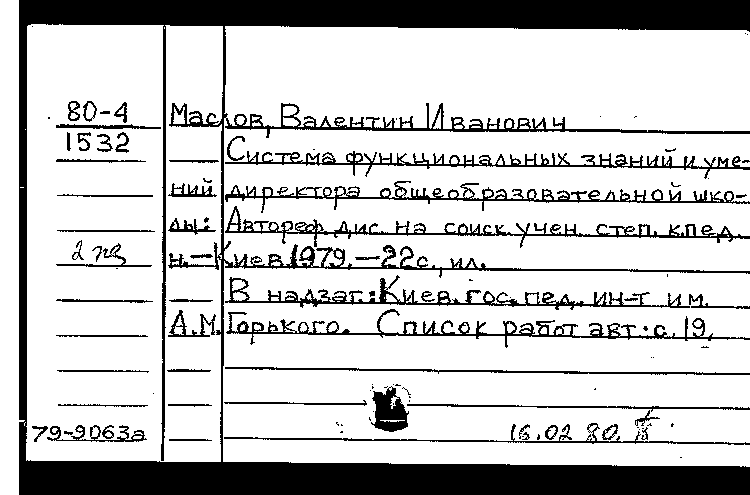 80-4 Маслов, Валентин Иванович
1532 Система функциональных знаний и уме-
ний директора общеобразовательной шко-
лы: Автореф. дис. на соиск. учен. степ. к. пед.
2 экз н. — Киев. 1979. — 22 с., ил.
В надзаг.: Киев. гос. пед. ин-т им.
А.М. Горького. Список работ авт.: с. 19.
79-9063а 16.02 80.